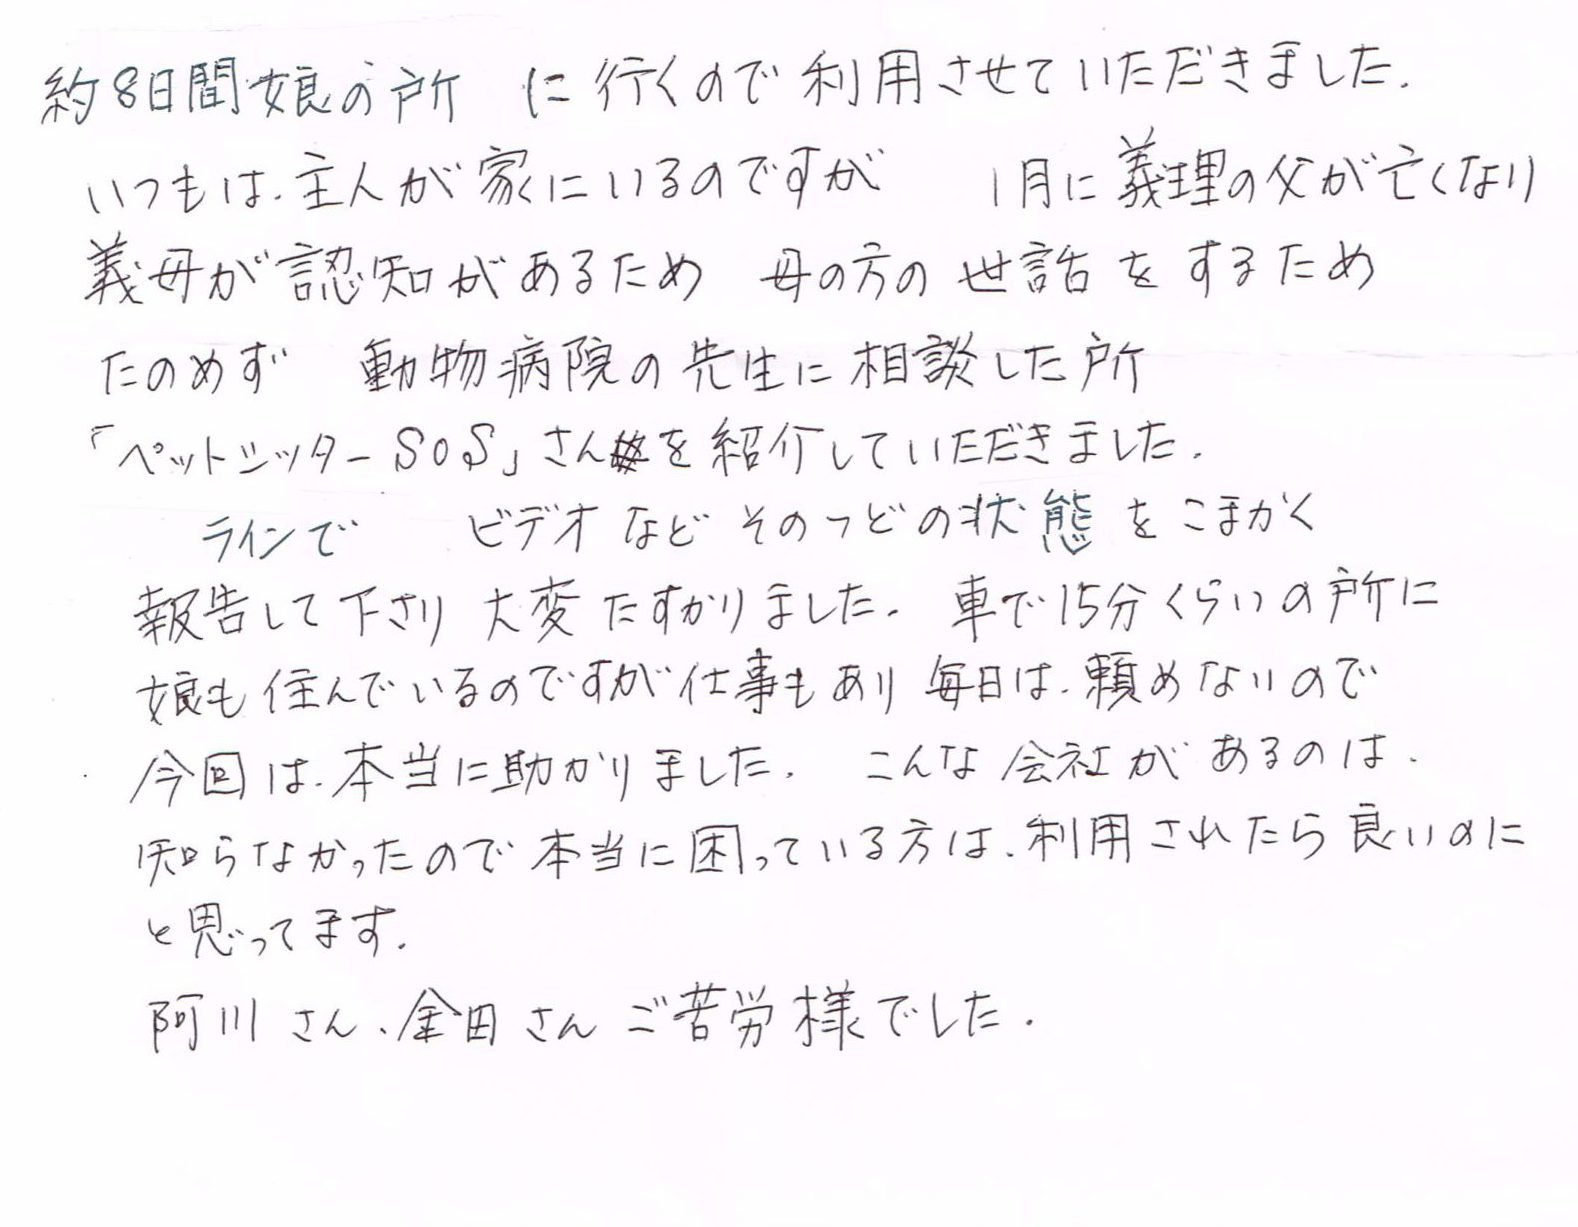 約8日間娘の所 に行くので利用させていただきました.
いつもは、主人が家にいるのですが 1月に義理の父が亡くなり
義母が認知があるため 母の方の世話をするため
たのめず 動物病院の先生に相談した所
「ペットシッターSOS」さんを紹介していただきました.
ラインで ビデオなどそのつどの状態をこまかく
報告して下さり 大変たすかりました. 車で15分くらいの所に
娘も住んでいるのですが仕事もあり毎日は、頼めないので
今回は、本当に助かりました. こんな会社があるのは.
知らなかったので本当に困っている方は、利用されたら良いのに
と思ってます.
阿川さん、金田さんご苦労様でした.